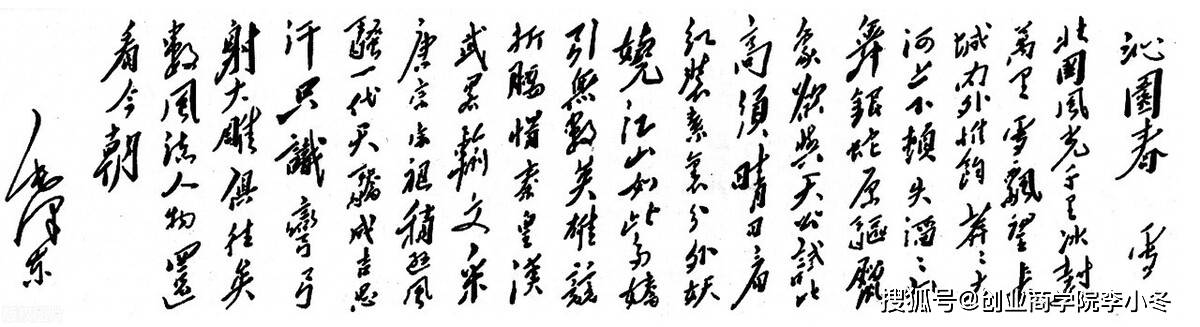 沁園春 雪
北國風光千里冰封
萬里雪飄望長
城内外惟餘莽々大
河上下頓失滔々山
舞銀蛇原驅臘
象欲與天公試比
高須晴日看
紅裝素裹分外妖
嬈江山如此多嬌
引無數英雄競
折腰惜秦皇漢
武略輸文采
唐宗宋祖稍遜風
騷一代天驕成吉思
汗只識彎弓
射大雕俱往矣
數風流人物還
看今朝
毛澤東
搜狐号@创业商学院李小冬